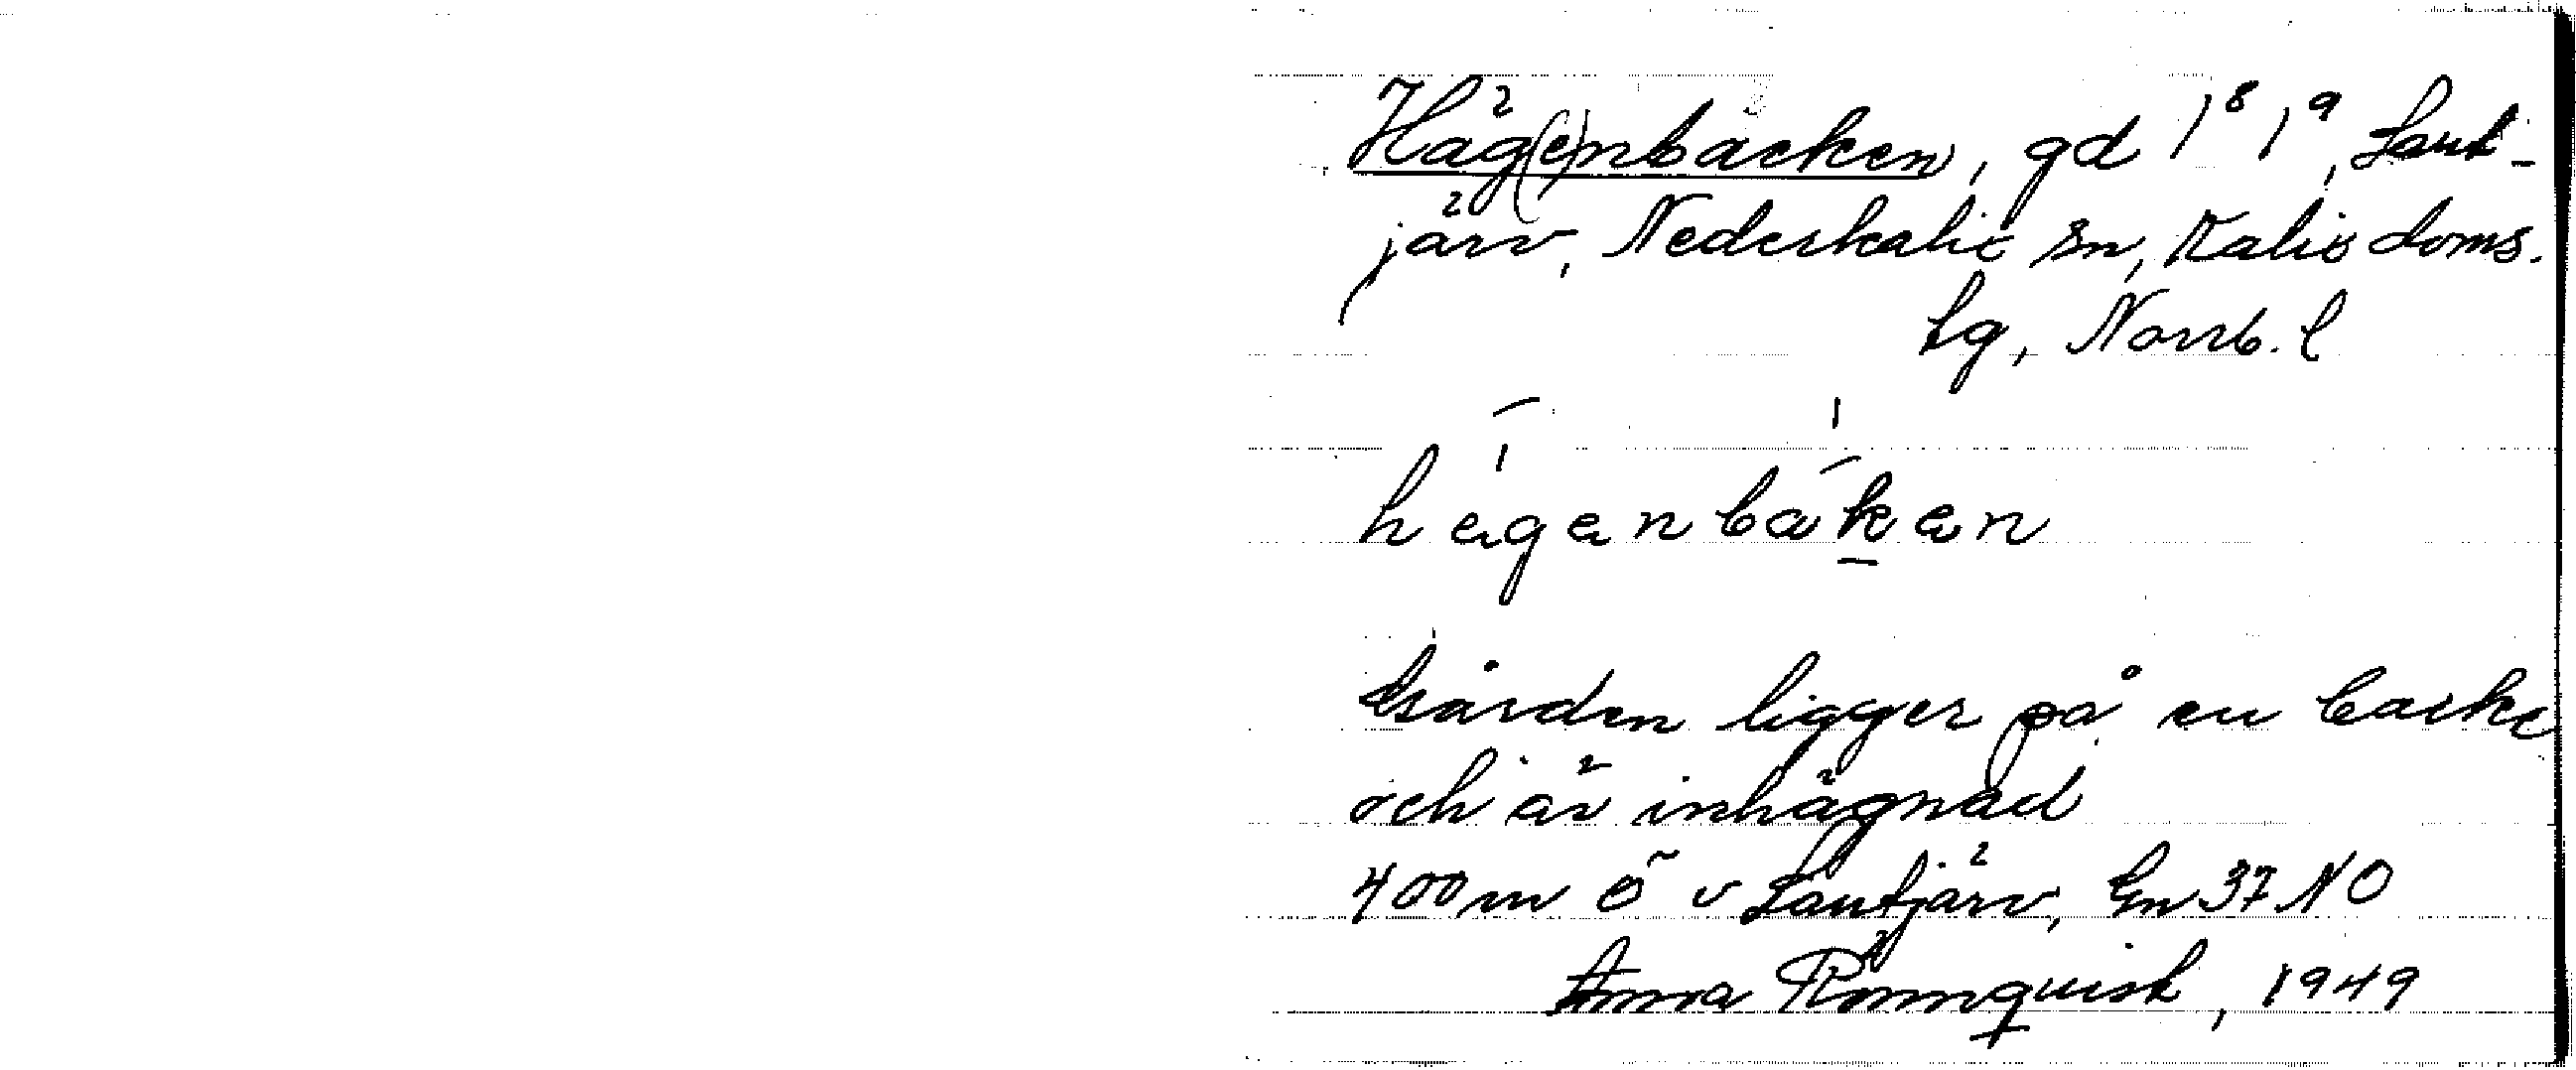 Häg(e)nbacken, gd 1⁸ 1⁹, Lant-
järv, Nederkalix sn, Kalix doms.
lg, Norrb. l
hägenbaken
Gården ligger på en backe
och är inhägnad
400 m Ö v Lantjärv, Gn 37 NO
Anna Rönnquist, 1949